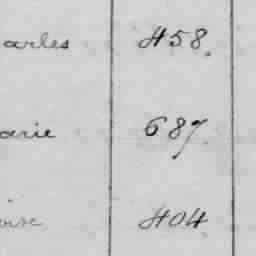 arles 458.
arie 687.
404